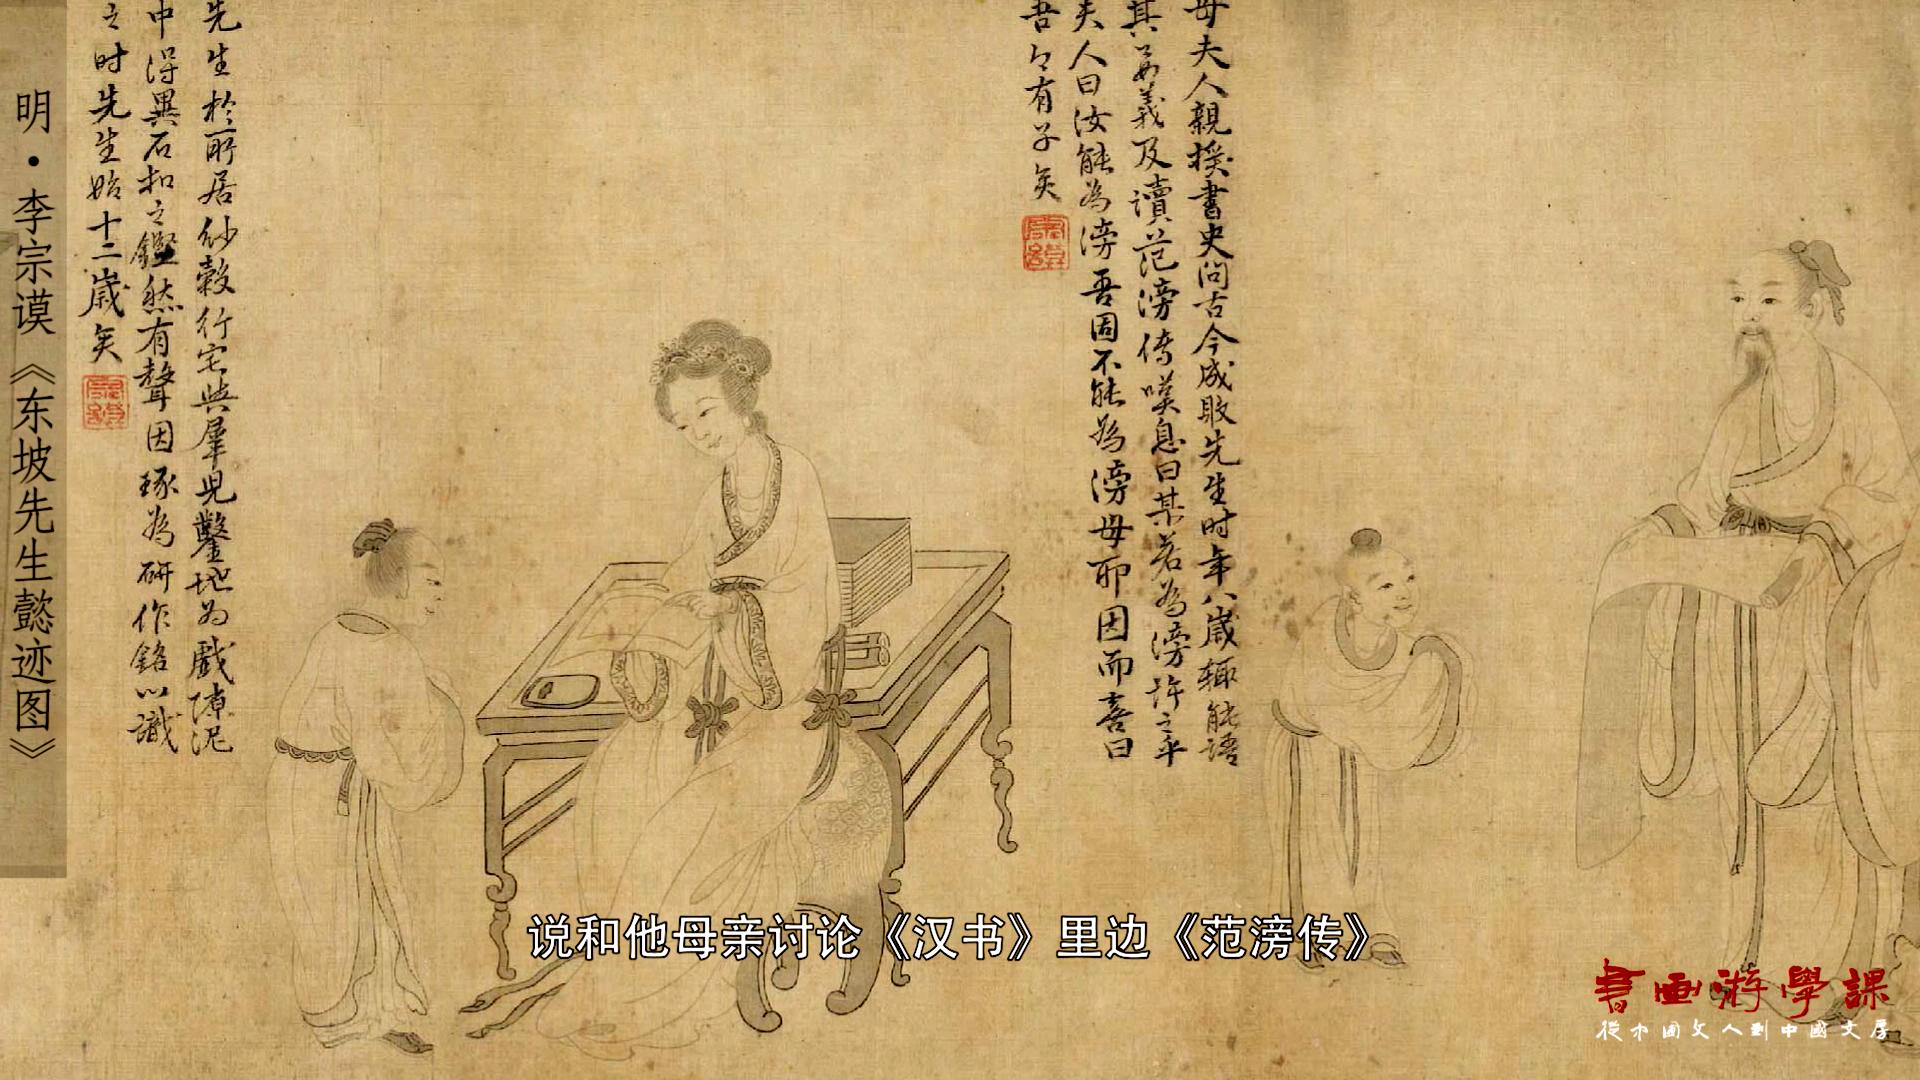 明·李宗谟《东坡先生懿迹图》
母夫人親授書史问古今成敗先生时年八歲輒能語
其要義及讀范滂傳嘆息曰某若為滂許之乎
夫人曰汝能為滂吾固不能為滂母耶因而喜曰
吾々有子矣
先生於所居纱縠行宅與羣児鑿地为戲陳泥
中得異石扣之鏗然有聲因琢為研作銘以識
之时先生始十二歲矣
说和他母亲讨论《汉书》里边《范滂传》
書画游學課
從中国文人到中國文房